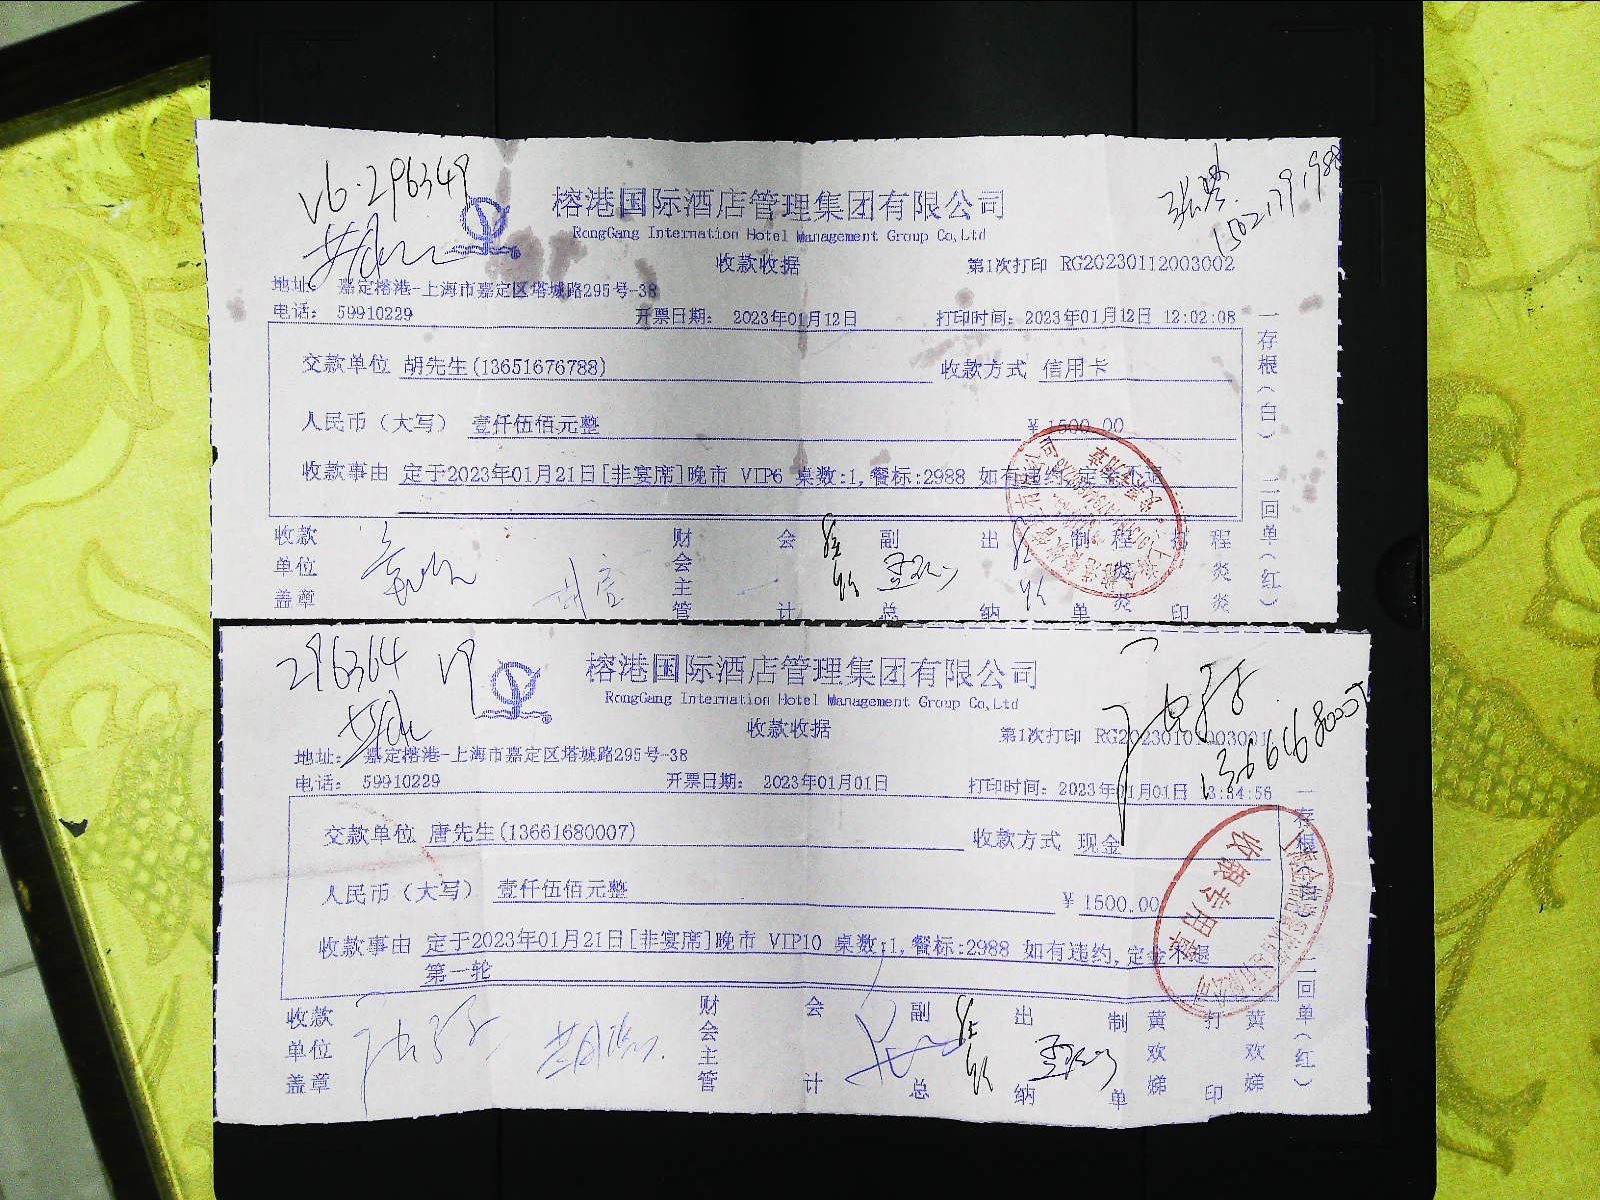 V6.296349
榕港国际酒店管理集团有限公司
RongGang Internation Hotel Management Group Co,Ltd
收款收据
第1次打印 RG20230112003002
地址： 嘉定榕港-上海市嘉定区塔城路295号-38
电话： 59910229
开票日期： 2023年01月12日
打印时间：2023年01月12日 12:02:08
交款单位 胡先生(13651676788) 收款方式 信用卡
人民币（大写） 壹仟伍佰元整 ¥ 1500.00
收款事由 定于2023年01月21日[非宴席]晚市 VIP6 桌数:1,餐标:2988 如有违约,定金不退
收款单位盖章 财会主管 会计 副总 出纳 制单 程炎炎 打印 程炎炎
一存根（白） 二回单（红）
296364 V9
榕港国际酒店管理集团有限公司
RongGang Internation Hotel Management Group Co,Ltd
收款收据
第1次打印 RG20230101003001
13661680007
地址： 嘉定榕港-上海市嘉定区塔城路295号-38
电话： 59910229
开票日期： 2023年01月01日
打印时间：2023年01月01日 13:54:56
交款单位 唐先生(13661680007) 收款方式 现金
人民币（大写） 壹仟伍佰元整 ¥ 1500.00
收款事由 定于2023年01月21日[非宴席]晚市 VIP10 桌数:1,餐标:2988 如有违约,定金不退
第一轮
收款单位盖章 财会主管 会计 副总 出纳 制单 黄欢娣 打印 黄欢娣
一存根（白） 二回单（红）
收银专用章